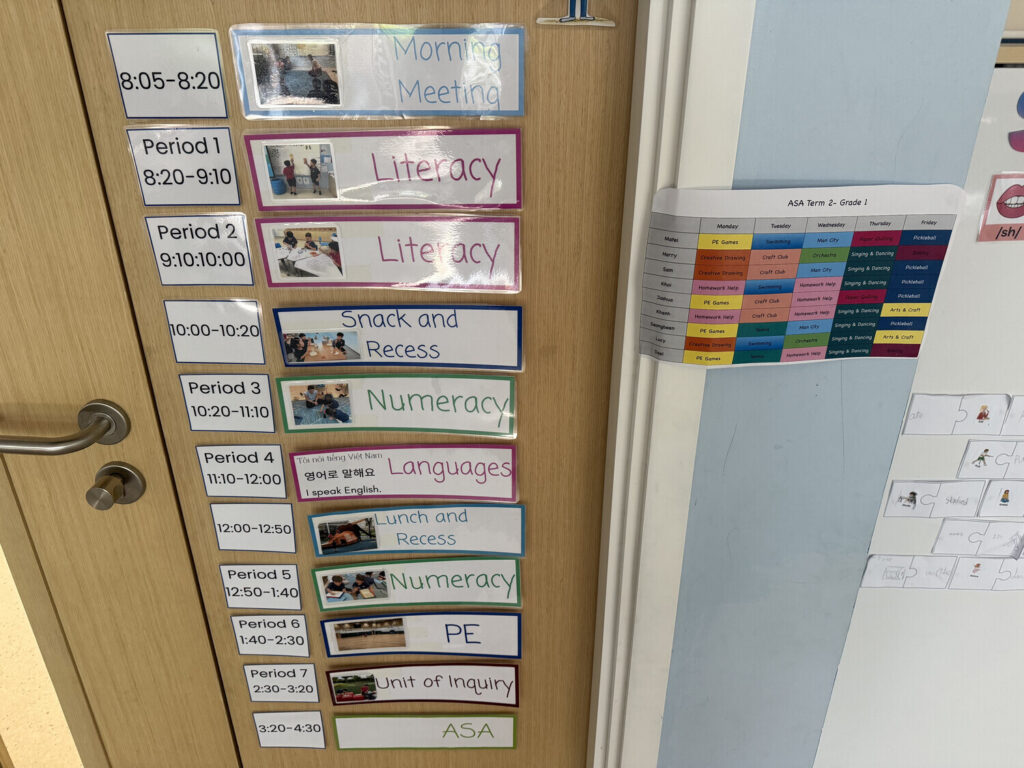 8:05-8:20
Morning
Meeting
Period 1
8:20-9:10
Literacy
Period 2
9:10:10:00
Literacy
10:00-10:20
Snack and
Recess
Period 3
10:20-11:10
Numeracy
Period 4
11:10-12:00
Tôi nói tiếng Việt Nam
영어로 말해요
I speak English.
Languages
12:00-12:50
Lunch and
Recess
Period 5
12:50-1:40
Numeracy
Period 6
1:40-2:30
PE
Period 7
2:30-3:20
Unit of Inquiry
3:20-4:30
ASA
ASA Term 2- Grade 1
Monday Tuesday Wednesday Thursday Friday
PE Games Swimming Man City Pickleball
Harry Creative Drawing Craft Club Orchestra Singing & Dancing
Sam Creative Drawing Craft Club Man City Singing & Dancing Pickleball
Khoi Homework Help Swimming Homework Help Singing & Dancing Pickleball
Joshua PE Games Craft Club Homework Help Pickleball
Khanh Homework Help Craft Club Homework Help Singing & Dancing Arts & Craft
Seongbeen PE Games Man City Singing & Dancing Pickleball
Lucy Creative Drawing Swimming Orchestra Singing & Dancing Arts & Craft
PE Games Homework Help Singing & Dancing
/sh/